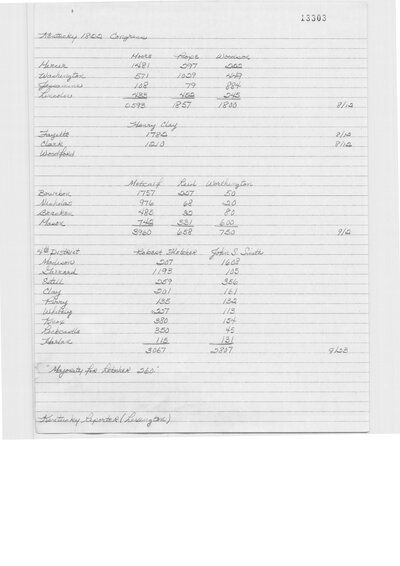 13303
Kentucky 1822 Congress
Moore Pope Woodson
Mercer 1481 297 222
Washington 571 1029 449
Jessamine 108 79 884
Lincoln 433 452 245
2593 1857 1800 8/12
Henry Clay
Fayette 1782 8/12
Clark 1210 8/12
Woodford
Metcalf Reid Worthington
Bourbon 1757 227 50
Nicholas 976 68 20
Bracken 485 32 80
Mason 742 331 600
3960 658 750 8/12
4th District Robert Fletcher John S. Smith
Madison 207 1608
Garrard 1193 105
Estill 259 356
Clay 201 161
Perry 135 132
Whitley 227 113
Knox 380 154
Rockcastle 350 45
Harlan 115 131
3067 2807 9/23
"Majority for Fletcher 260."
Kentucky Reporter (Lexington)